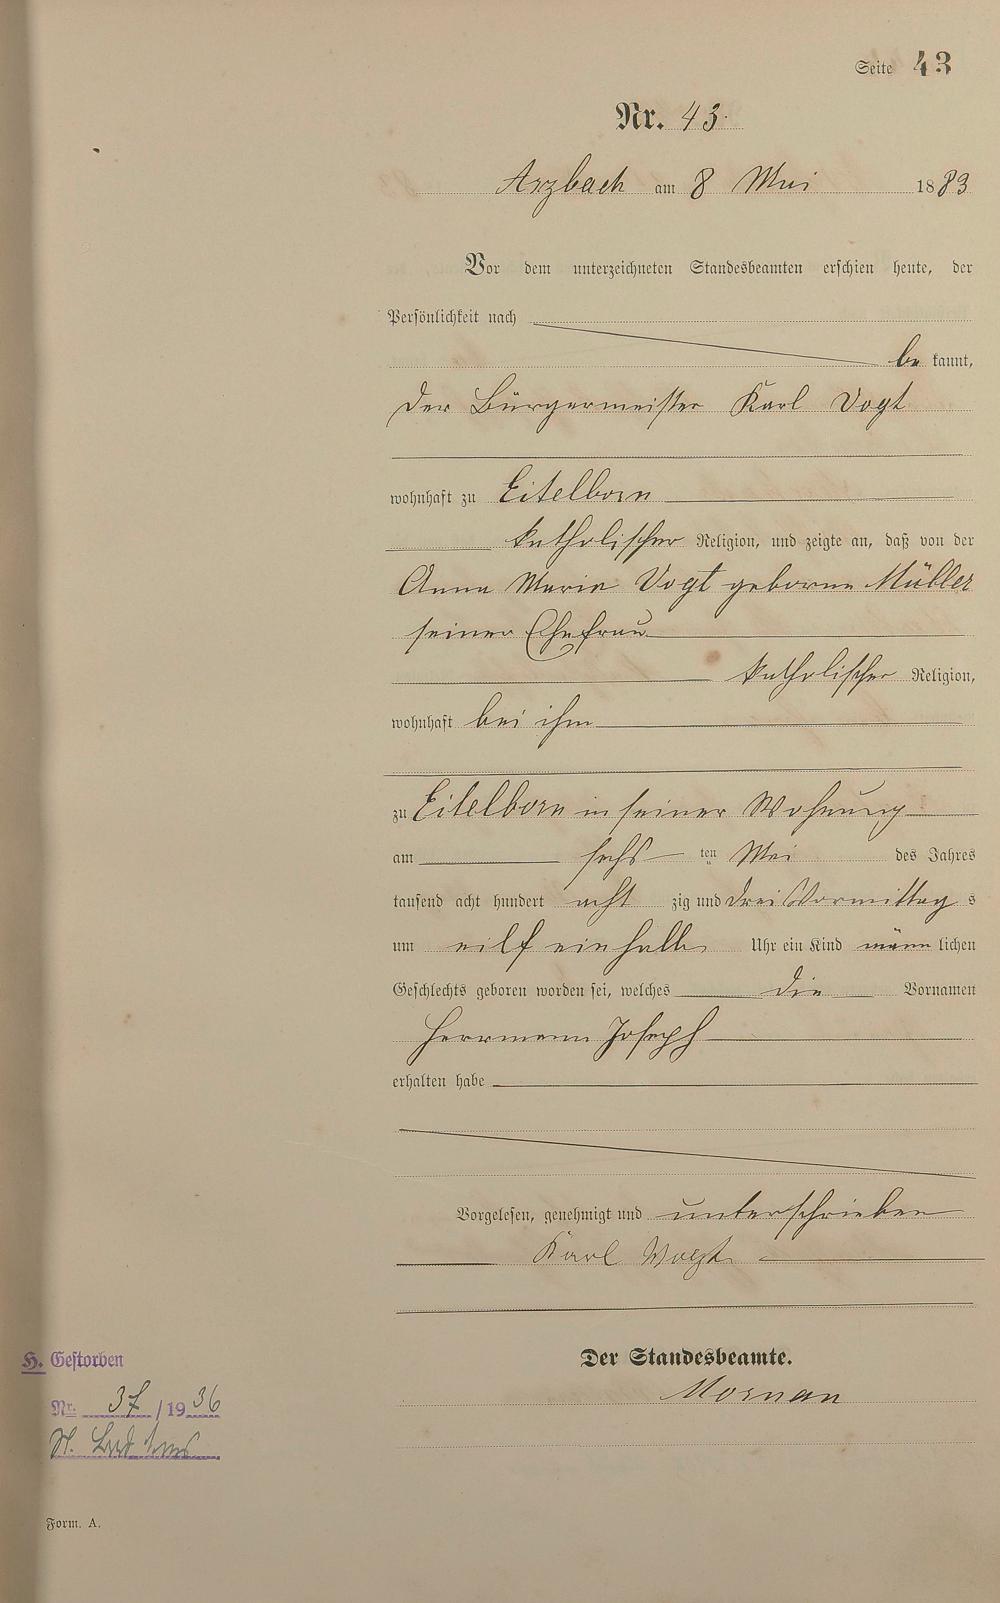 Seite 43
Nr. 43.
Arzbach am 8 Mai 1883
Vor dem unterzeichneten Standesbeamten erschien heute, der
Persönlichkeit nach
be kannt,
der Bürgermeister Karl Vogt
wohnhaft zu Eitelborn
katholischer Religion, und zeigte an, daß von der
Anna Maria Vogt geborne Müller
seiner Ehefrau
katholischer Religion,
wohnhaft bei ihm
zu Eitelborn in seiner Wohnung
am sechs ten Mai des Jahres
tausend acht hundert acht zig und drei Vormittag s
um eilf einhalb Uhr ein Kind männ lichen
Geschlechts geboren worden sei, welches die Vornamen
Herrmann Joseph
erhalten habe
Vorgelesen, genehmigt und unterschrieben
Karl Vogt
Der Standesbeamte.
H. Gestorben
Nr. 37 /1936
St.
Form. A.